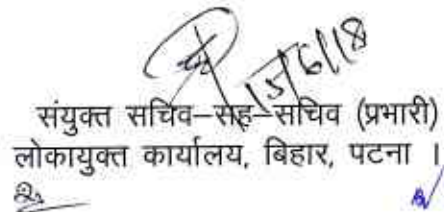 15/6/18
संयुक्त सचिव–सह–सचिव (प्रभारी)
लोकायुक्त कार्यालय, बिहार, पटना ।